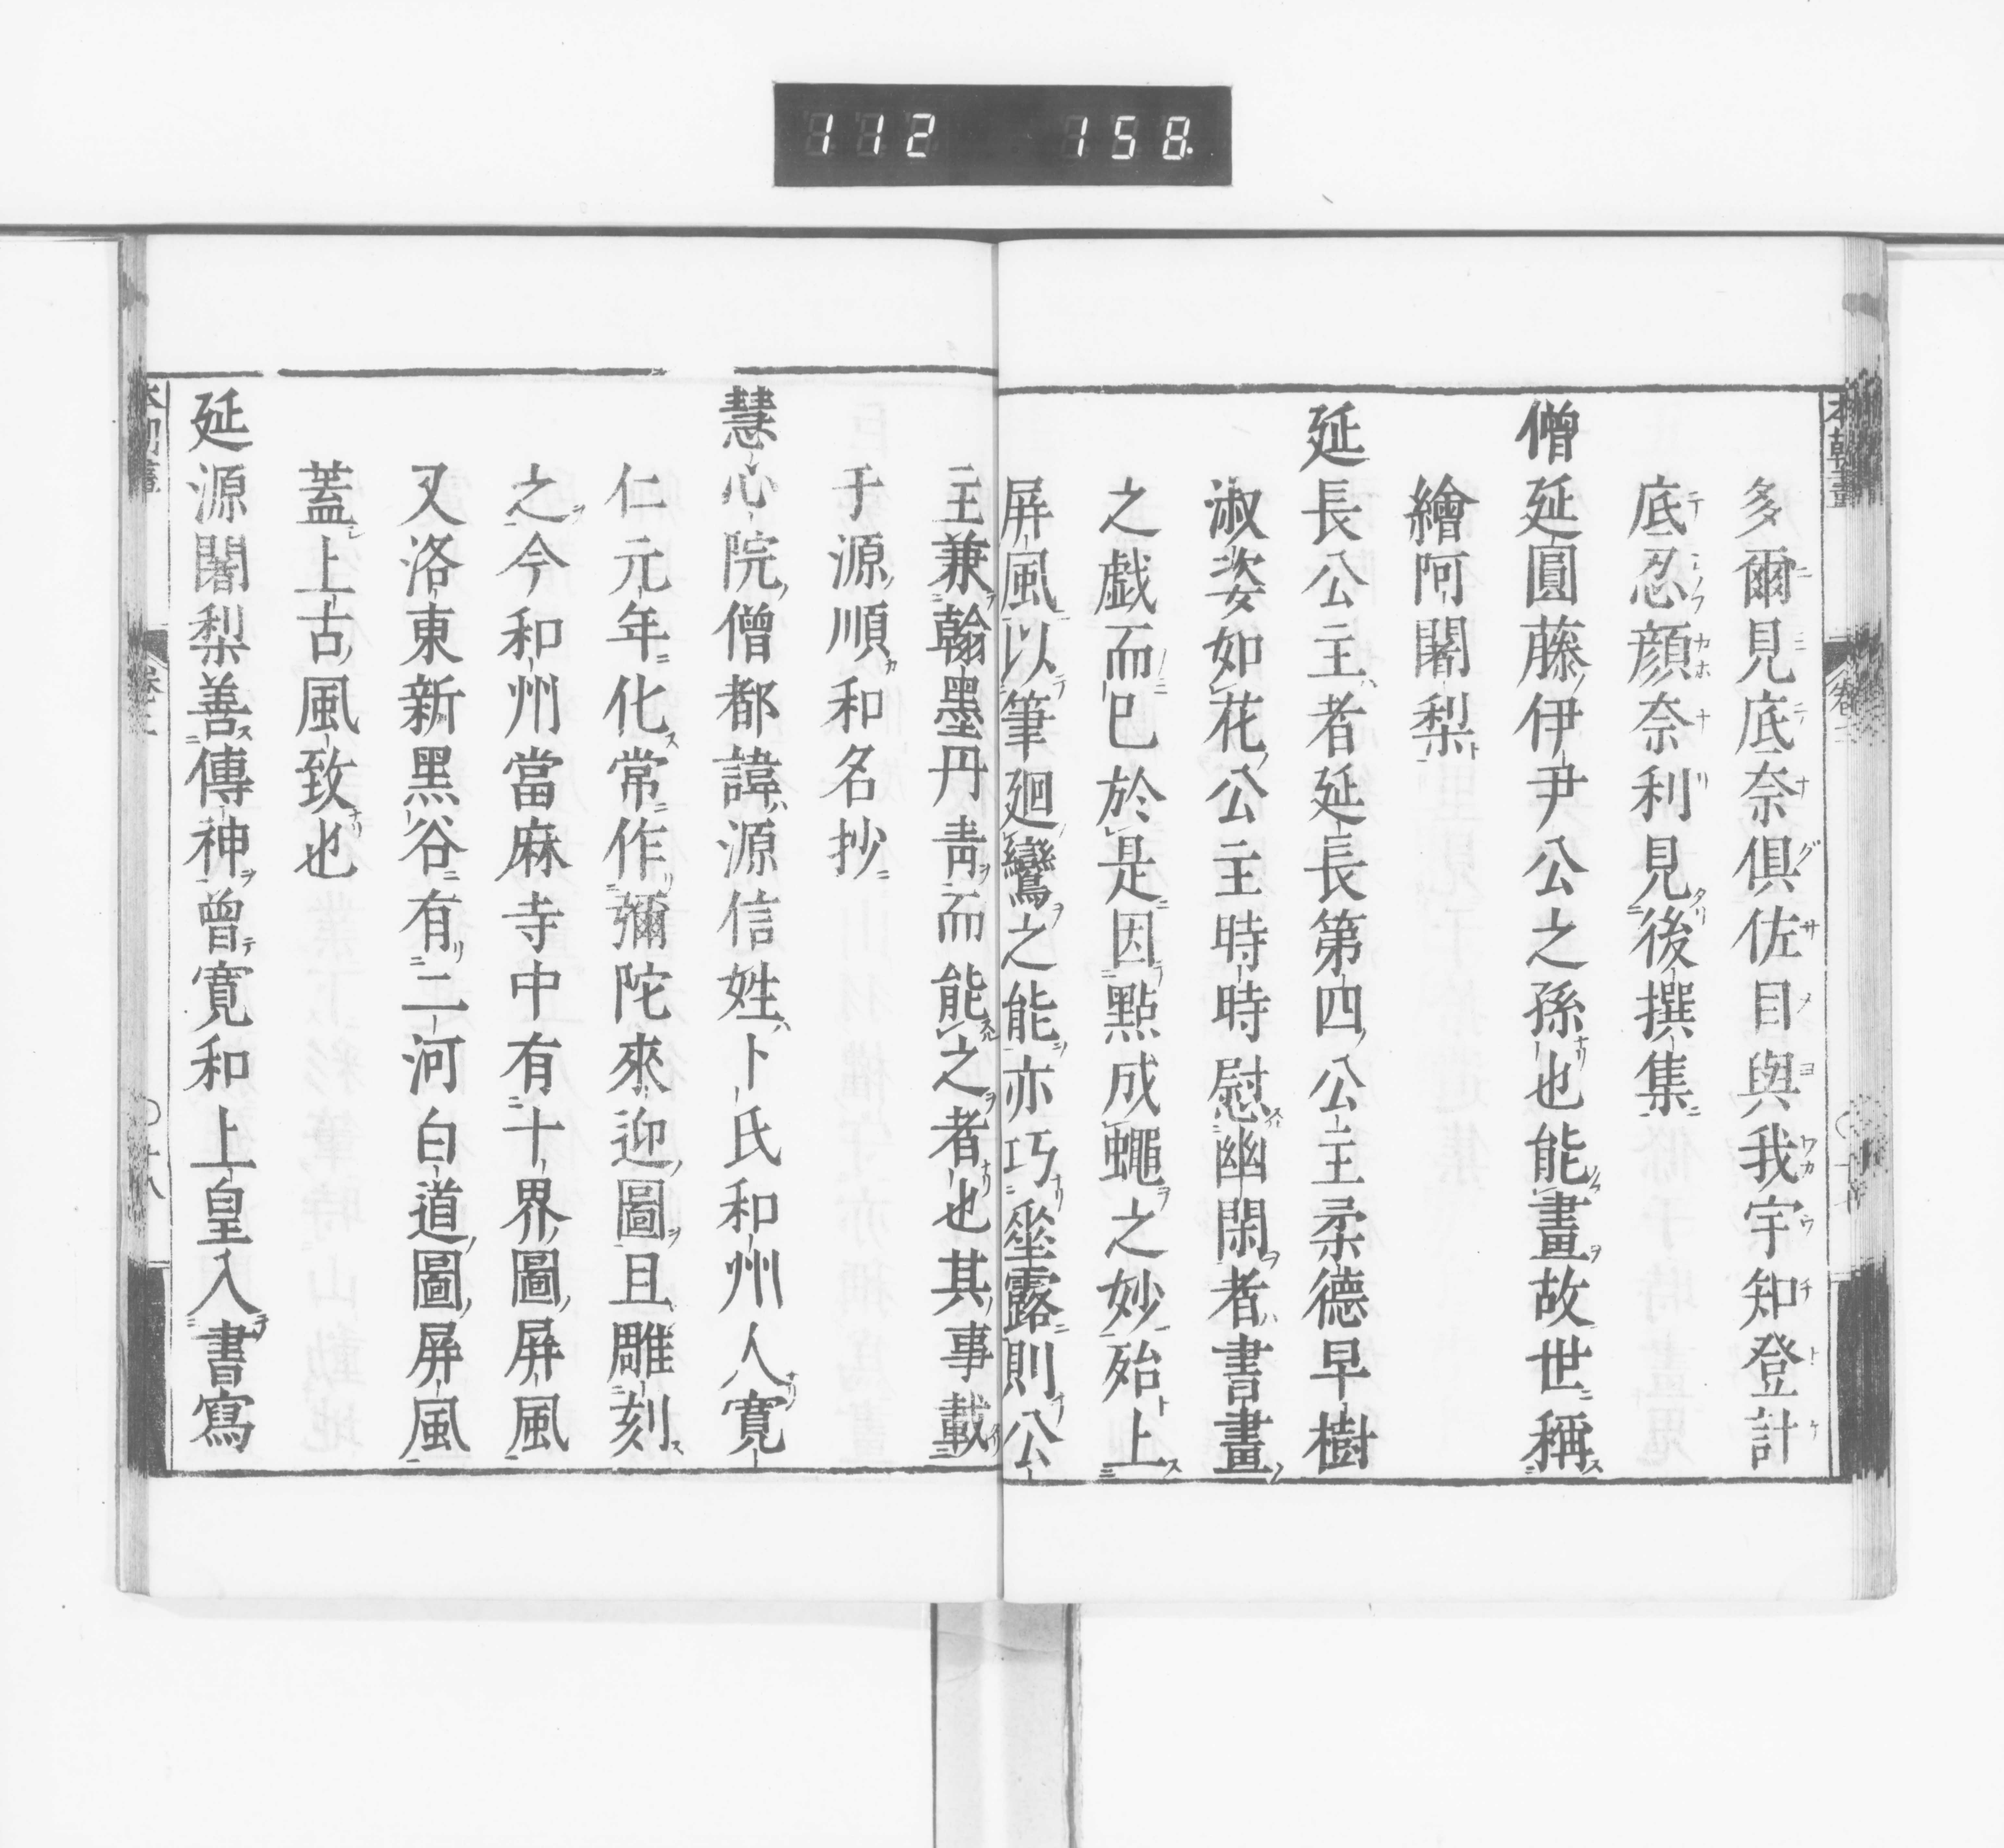 112 158.
多爾見底奈俱佐目與我宇知登計
底忍顔奈利見後撰集
僧延圓藤伊尹公之孫也能畫故世稱
繪阿闍梨
延長公主者延長第四公主柔德早樹
淑姿如花公主時時慰幽閑者書畫
之戯而已於是因點成蠅之妙殆上
屏風以筆廻鸞之能亦巧垂露則公
主兼翰墨丹靑而能之者也其事載
于源順和名抄
慧心院僧都諱源信姓卜氏和州人寛
仁元年化常作彌陀來迎圖且雕刻
之今和州當麻寺中有十界圖屏風
又洛東新黑谷有二河白道圖屏風
蓋上古風致也
延源闍梨善傳神曾寛和上皇入書寫